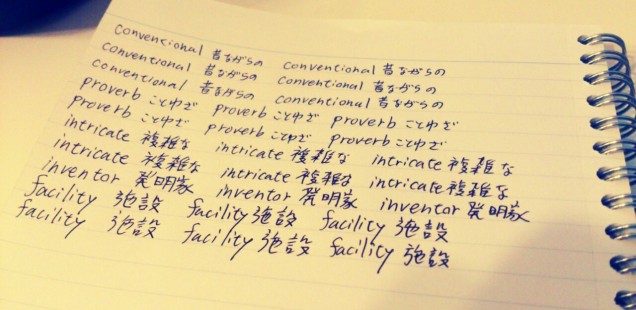 conventional 昔ながらの conventional 昔ながらの
conventional 昔ながらの conventional 昔ながらの
conventional 昔ながらの conventional 昔ながらの
proverb ことわざ proverb ことわざ proverb ことわざ
proverb ことわざ proverb ことわざ proverb ことわざ
intricate 複雑な intricate 複雑な intricate 複雑な
intricate 複雑な intricate 複雑な intricate 複雑な
inventor 発明家 inventor 発明家 inventor 発明家
facility 施設 facility 施設 facility 施設
facility 施設 facility 施設 facility 施設